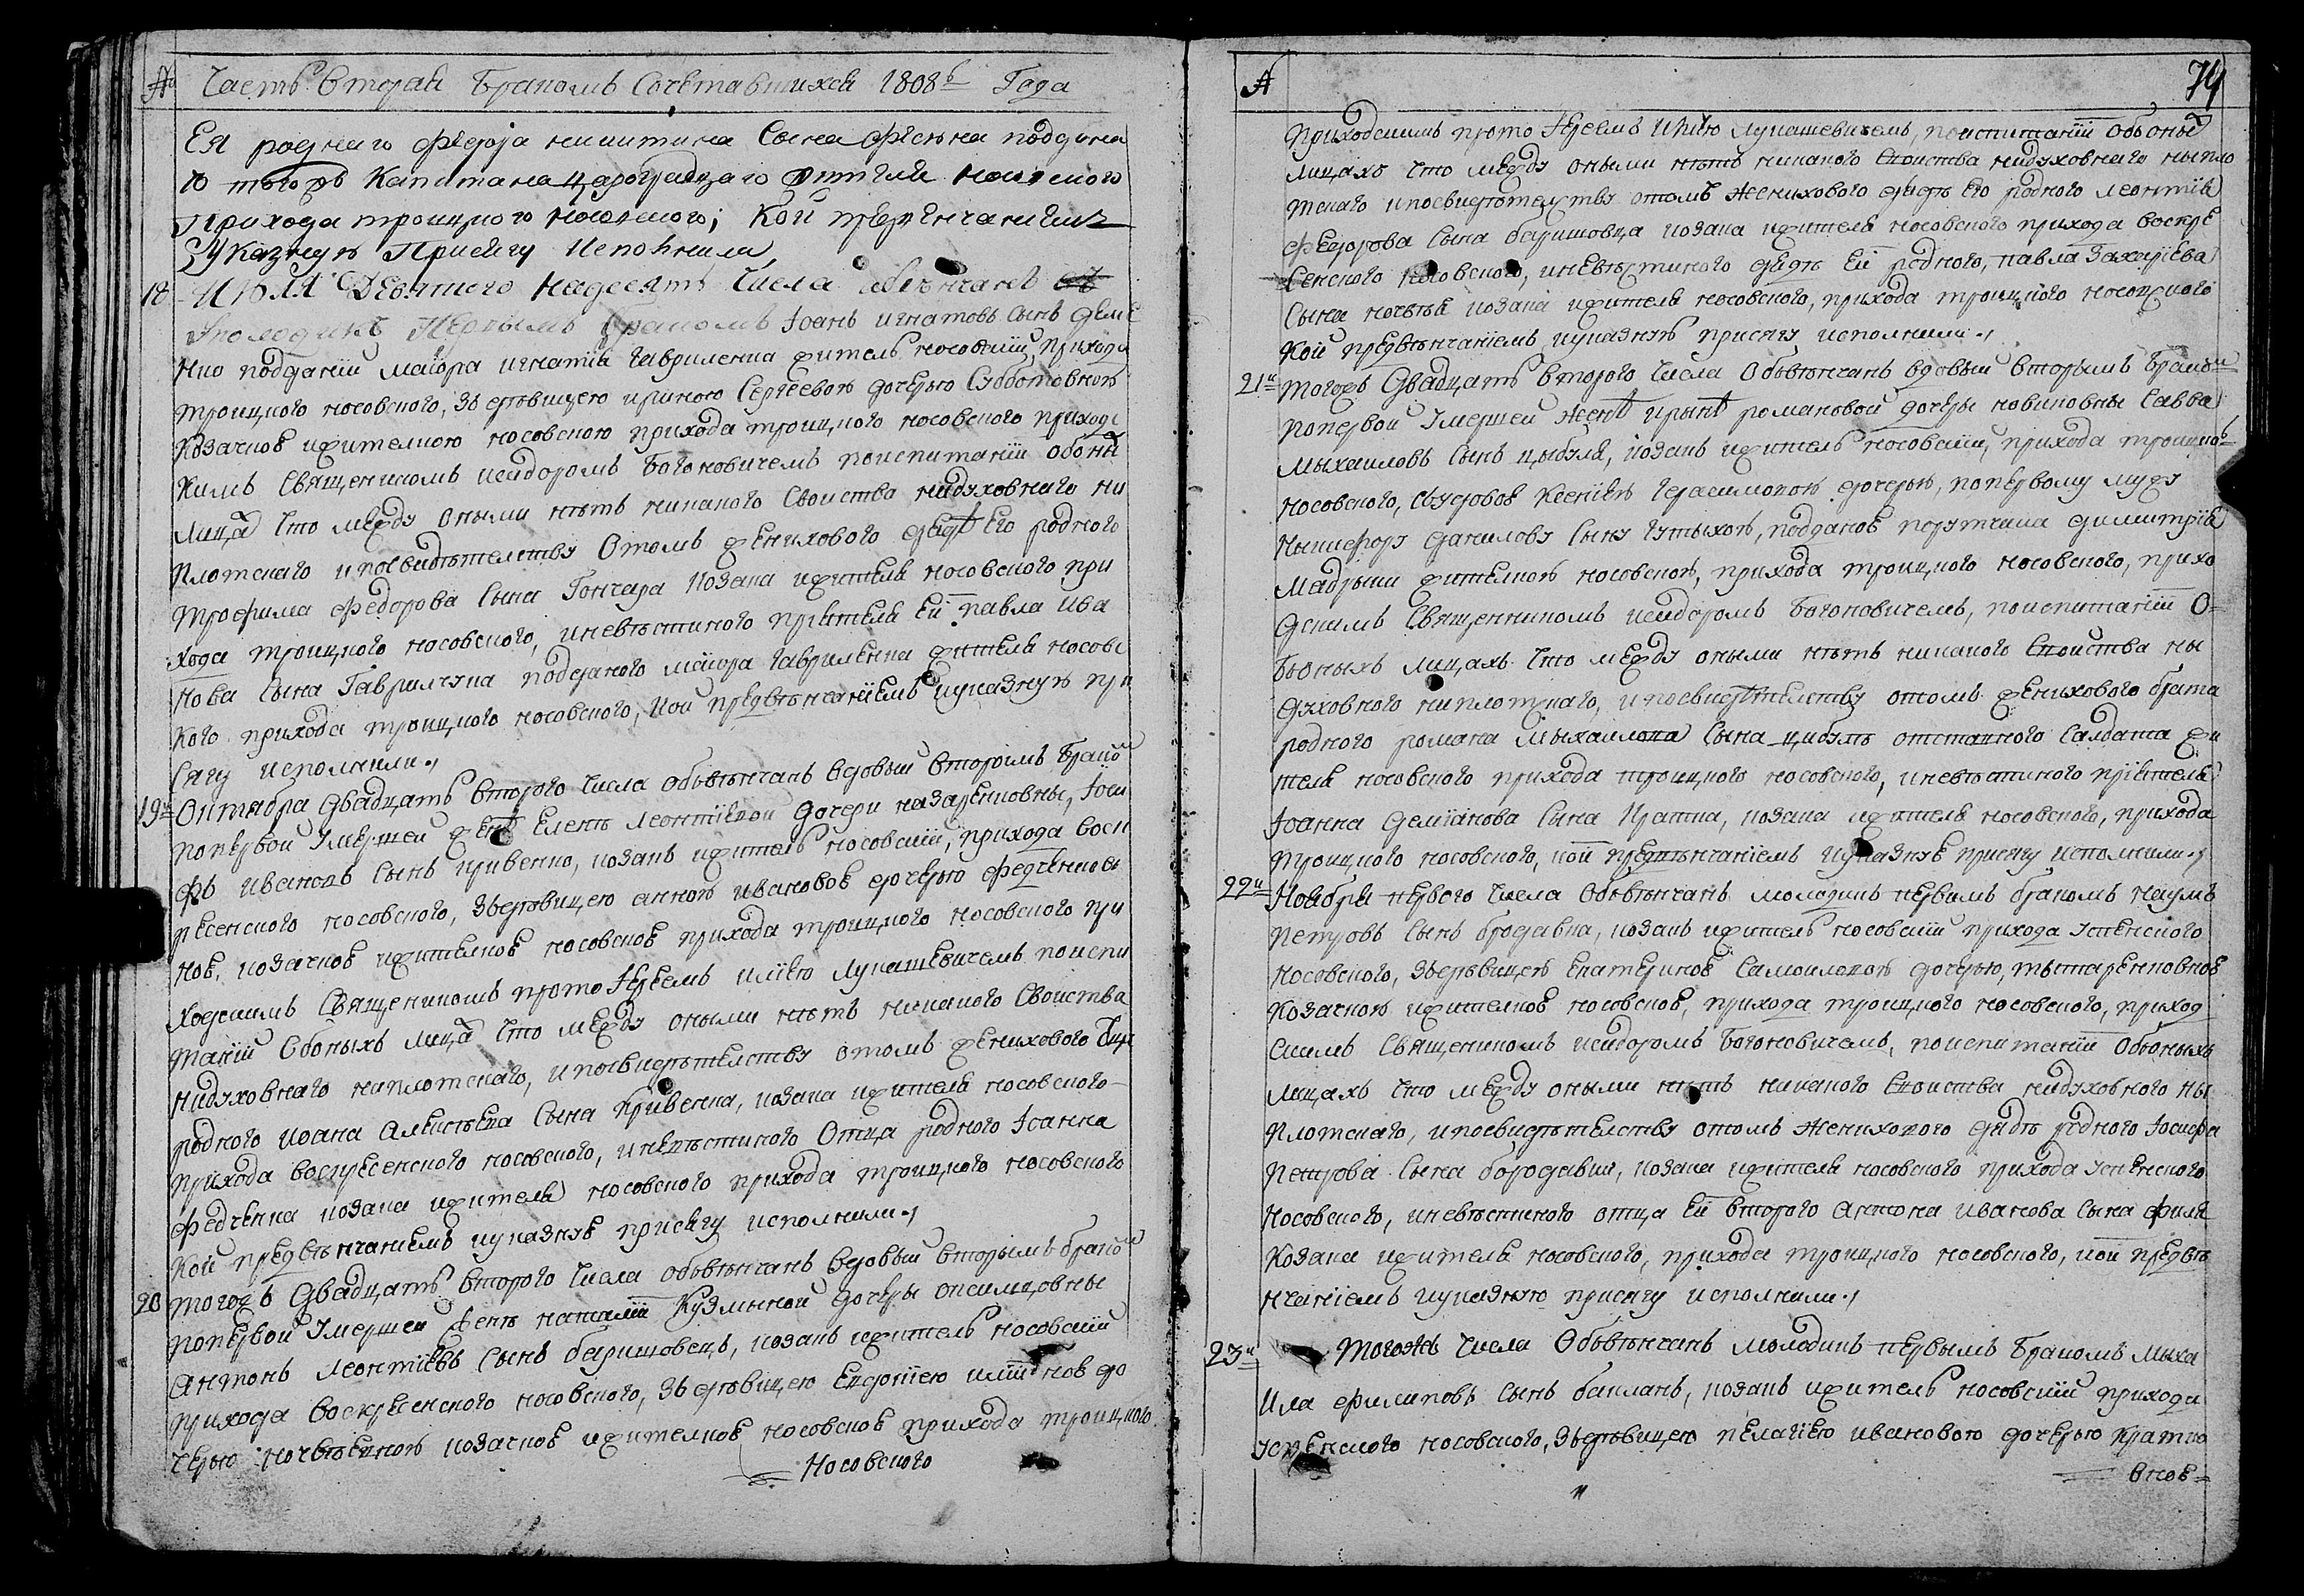 № Часть Вторая Бракомъ Сочетавшихся 1808ᵇ Года
Ея роднаго Федора никитина Сына фесѣна поддана
го тогожъ Капитана Цароградзаго жителя носовского
Прихода троицкого носовского; Кои предвѣнчаниемъ
Указную Присягу Исполнили
18 Июля Девятого Надесять Числа обвѣнчанъ
Молодикъ Первымъ бракомъ Іоанъ игнатовъ сынъ деме
нко подданій маіора игнатія Гавриленка житель носовскій прихода
троицкого носовского, зъ дѣвицею ириною Сергѣевою дочерью Субботовною
Козачкою жителкою носовскою прихода троицкого носовского приходс
кимъ Священикомъ исидоромъ Богоновичемъ поиспитаніи обоны
лица что между оными нѣтъ никакого Своиства нидуховнаго ни
плотскаго ипосвидѣтелству отомъ женихового дядѣ Его родного
трофима федорова Сына Гончара козака жителя носовского при
хода троицкого носовского, иневѣстиного пріятеля Ей павла ива
нова Сына Гаврилчука подданого маіора гавриленка жителя носовс
кого прихода троицкого носовского, кои предвѣнчаніемъ указную при
сягу исполнили.
19ᵘ Октября Двадцать второго числа обвѣнчанъ вдовый вторымъ брако
попервой умершей женѣ Еленѣ Леонтіевой дочери назаренковны, Іоси
фъ Ивановъ Сынъ кривенко, козакъ житель носовскій, прихода воск
ресенского носовского, зъдѣвицею анною ивановою дочерью федченков
ною, козачкою жителкою носовскою прихода троицкого носовского при
ходскимъ Священикомъ протоІереемъ иліею лукашевичемъ поиспи
таніи обоныхъ лица что между оными нѣтъ никакого Своиства
нидуховнаго ниплотскаго, ипосвидѣтелству отомъ женихового
родного иоана алексѣева Сына Кривенка, козака жителя носовского
прихода воскресенского носовского, иневѣстиного Отца родного Іоанна
федченка козака жителя носовского прихода троицкого носовского
Кои предвѣнчаниемъ указную присягу исполнили.
20 тогожъ Двадцать второго числа обвѣнчанъ вдовый вторымъ брако
попервой умершей женѣ наталіи Кузминой дочеры
антонъ леонтіевъ Сынъ баришовецъ, козакъ житель носовскій
прихода воскресенского носовского, зъ дѣвицею Евдокіею дo
черью козачкою жителкою носовскою прихода троицкого
Носовского
№ 74
Приходскимъ протоІереемъ Иліею лукашевичемъ, поиспитаніи обоны
лицахъ что между оными нѣтъ никакого своиства нидуховнаго нипло
тскаго ипосвидѣтелству отомъ женихового дядѣ его родного леонтія
федорова Сына баришовца козака жителя носовского прихода воскре
сенского носовского, иневѣстиного дядѣ Ей родного, павла Захаріева
Сына козака жителя носовского, прихода троицкого носовского
Кои предвѣнчаніемъ указную присягу исполнили.
21ᵘ тогожъ Двадцать второго числа обвѣнчанъ вдовый вторымъ брако
попервой умершей женѣ ирынѣ романовой дочеры новиковны Савва
Мыхаиловъ Сынъ цыбуля, козакъ житель носовскій, прихода троицко
носовского, съудовою Ксеніею Герасимовою дочерью, попервому мужу
Никифору данилову Сыну подданою порутчика димитрія
Мадрыки жителкою носовскою, прихода троицкого носовского, прихо
дскимъ Священникомъ исидоромъ Богоновичемъ, поиспитаніи О-
боныхъ лицахъ что между оными нѣтъ никакого своиства ны
духовного ниплотскаго, ипосвидѣтелству отомъ жениховаго брата
родного романа Мыхаилова Сына цибулѣ отставного салдата жи
теля носовского прихода троицкого носовского, иневѣстиного пріятеля
Іоанна деміанова Сына Кратка, козака жителя носовского, прихода
троицкого носовского, кои предвѣнчаніемъ указную присягу исполнили.
22ᵘ Ноября первого числа Обвѣнчанъ молодикъ первымъ бракомъ наумъ
Петровъ Сынъ бродавка, козакъ житель носовскій прихода успенского
носовского, зъдѣвицею Екатериною Самоиловою дочерью, тытаренковною
Козачкою жителкою носовскою, прихода троицкого носовского, приход
скимъ Священикомъ исидоромъ Богоновичемъ, поиспитаніи обоныхъ
лицахъ что между оными нѣтъ никакого своиства нидуховного ны
плотскаго, ипосвидѣтелству отомъ женихового дядѣ родного Іосифа
петрова Сына бородавки, козака жителя носовского прихода успенского
носовского, иневѣстиного отца Ей второго антона иванова Сына филя
козака жителя носовского, прихода троицкого носовского, кои предвѣ
нчаніемъ указную присягу исполнили.
23ᵘ тогожъ числа Обвѣнчанъ молодикъ первымъ бракомъ Мыха
ила филиповъ Сынъ бакланъ, козакъ житель носовскій прихода
успенского носовского, зъдѣвицею пелагіею ивановою дочерью Кратко
вною